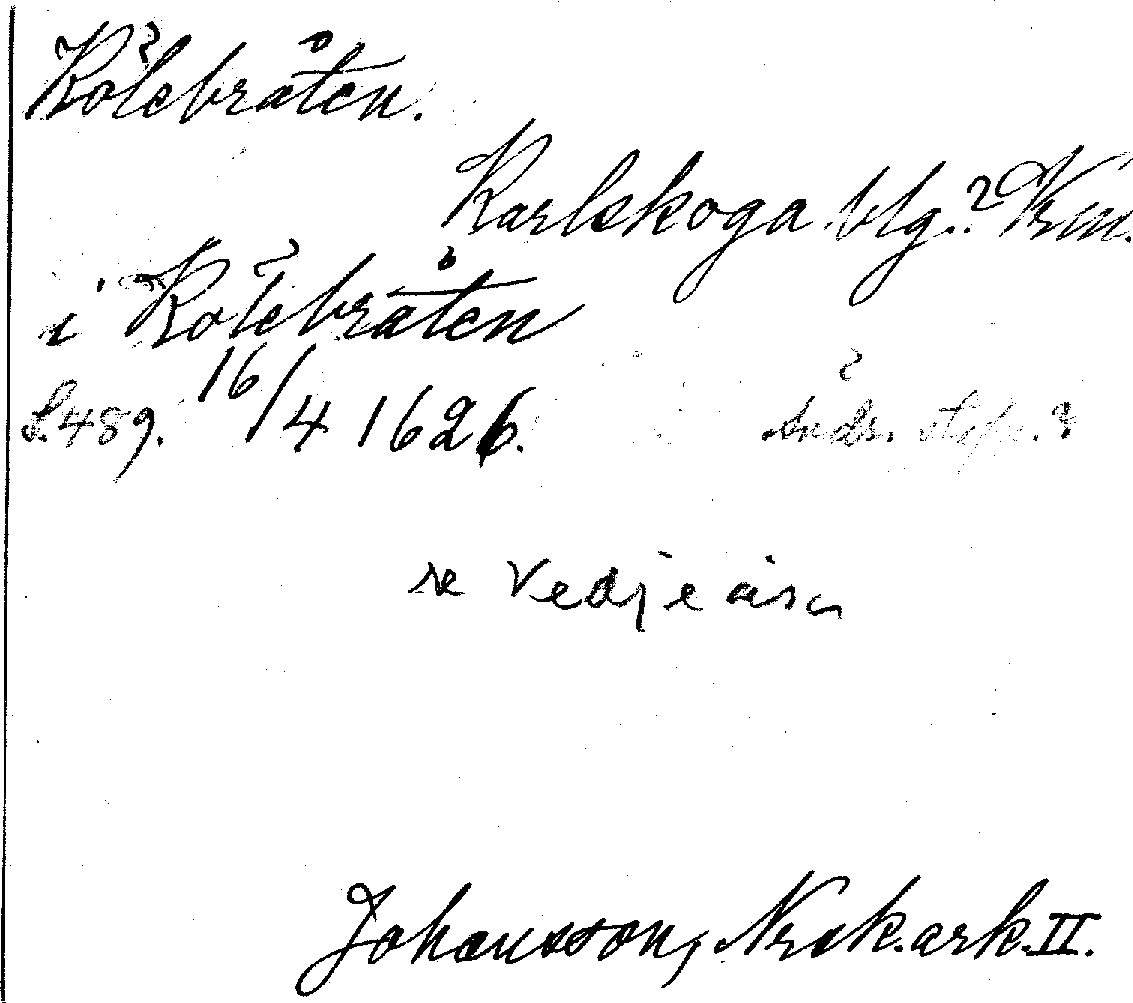 Kolebråten.
Karlskoga blg.? Krm.
i Kolebråten
S. 489. 16/4 1626.
se Vedjeåsen
Johansson, Nrsk. ark. II.